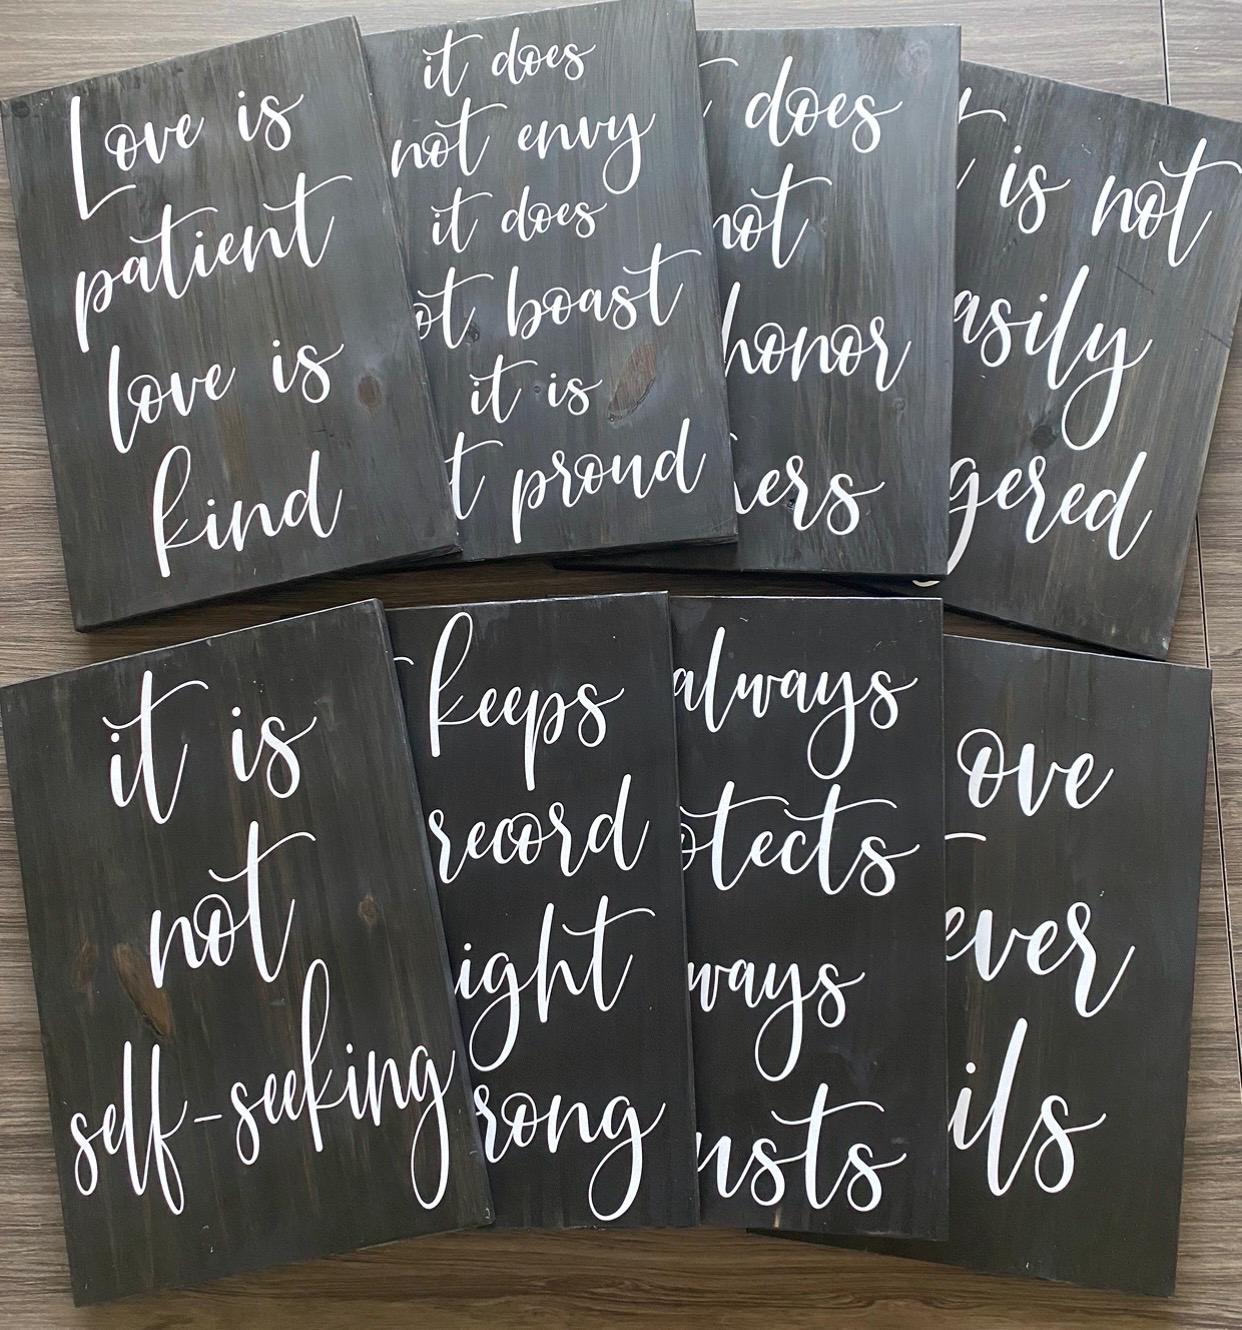 Love is
patient
love is
kind
it does
not envy
it does
ot boast
it is
t proud
does
not
honor
hers
t is not
asily
gered
it is
not
self-seeking
keeps
record
ight
rong
always
otects
ways
usts
ove
ever
ils